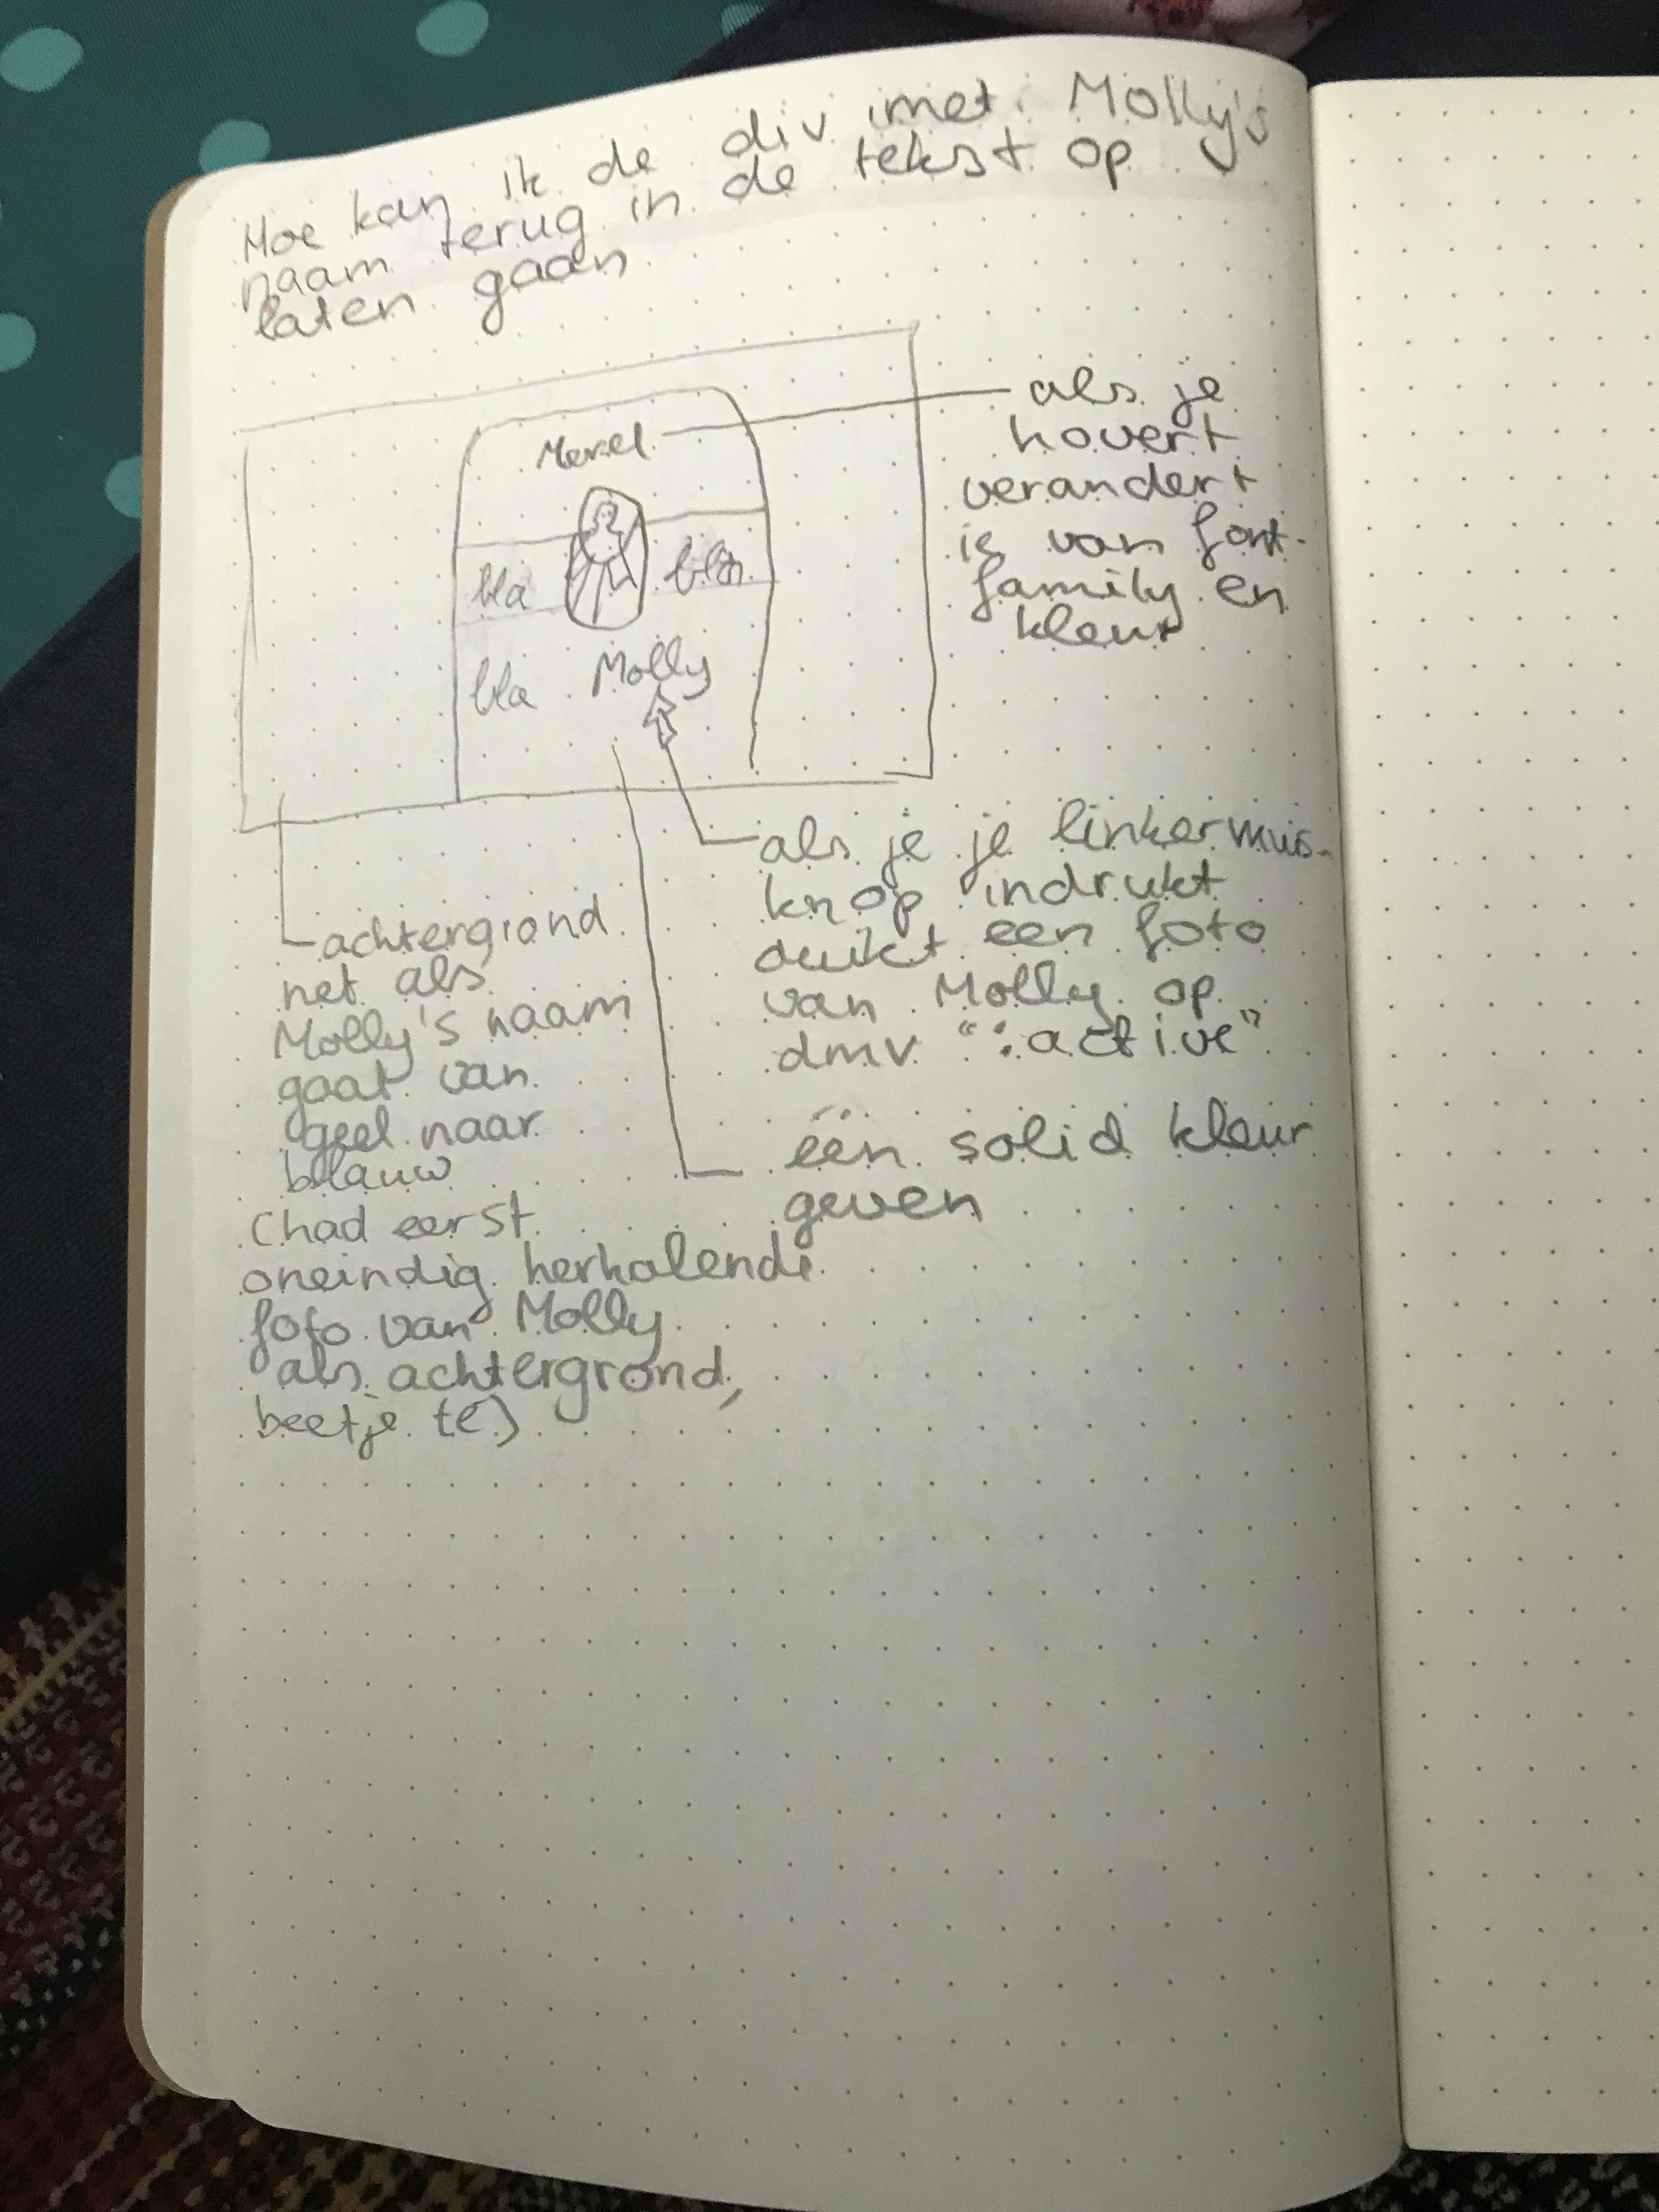 Hoe kan ik de div met Molly's
naam terug in de tekst op
laten gaan
Merel
bla
bla
bla
Molly
als je
hovert
verandert
ie van font-
family en
kleur
als je je linkermuis-
knop indrukt
duikt een foto
van Molly op
dmv ":active"
één solid kleur
geven
achtergrond
net als
Molly's naam
gaat van
geel naar
blauw
(had eerst
oneindig herhalende
foto van Molly
als achtergrond,
beetje te)